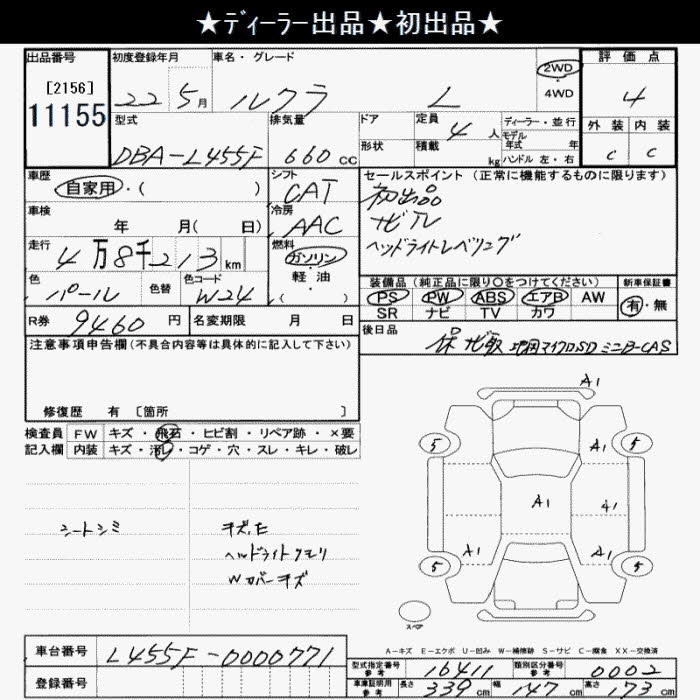 ★ディーラー出品★初出品★
出品番号 初度登録年月 車名・グレード 評価点
[2156]
11155
22 5月 ルクラ L 2WD・4WD 4
型式 排気量 ドア 定員 4人 ディーラー・並行 外装 内装
モデル年式 年
DBA-L455F 660cc 形状 積載 kg ハンドル 左・右 C C
車歴 シフト セールスポイント(正常に機能するものに限ります)
自家用・( ) CAT 初出品
車検 冷房 ナビTV
年 月( 日) AAC ヘッドライトレベリング
走行 燃料
4万8千213km ガソリン・軽油・( )
色 色替 色コード 装備品(純正品に限り○をつけてください) 新車保証書
パール W24 PS PW ABS エアB AW 有・無
SR ナビ TV カワ
R券 9460円 名変期限 月 日 後日品
保 ナビ取 地図マイクロSD ミニB-CAS
注意事項申告欄(不具合内容等は具体的に記入して下さい)
修復歴 有 [箇所 ]
検査員 FW キズ・飛石・ヒビ割・リペア跡・×要
記入欄 内装 キズ・汚レ・コゲ・穴・スレ・キレ・破レ
A1
5 A1 5
A1 A1
A1 A1
5 5
シートシミ キズ,E
ヘッドライトクモリ
Wカバーキズ
スペア
A-キズ E-エクボ U-凹み W-補修跡 S-サビ C-腐食 XX-交換済
車台番号 L455F-0000771
型式指定番号 参考 16411 類別区分番号 参考 0002
登録番号
車庫証明用 参考 長さ 339cm 幅 147cm 高さ 73cm